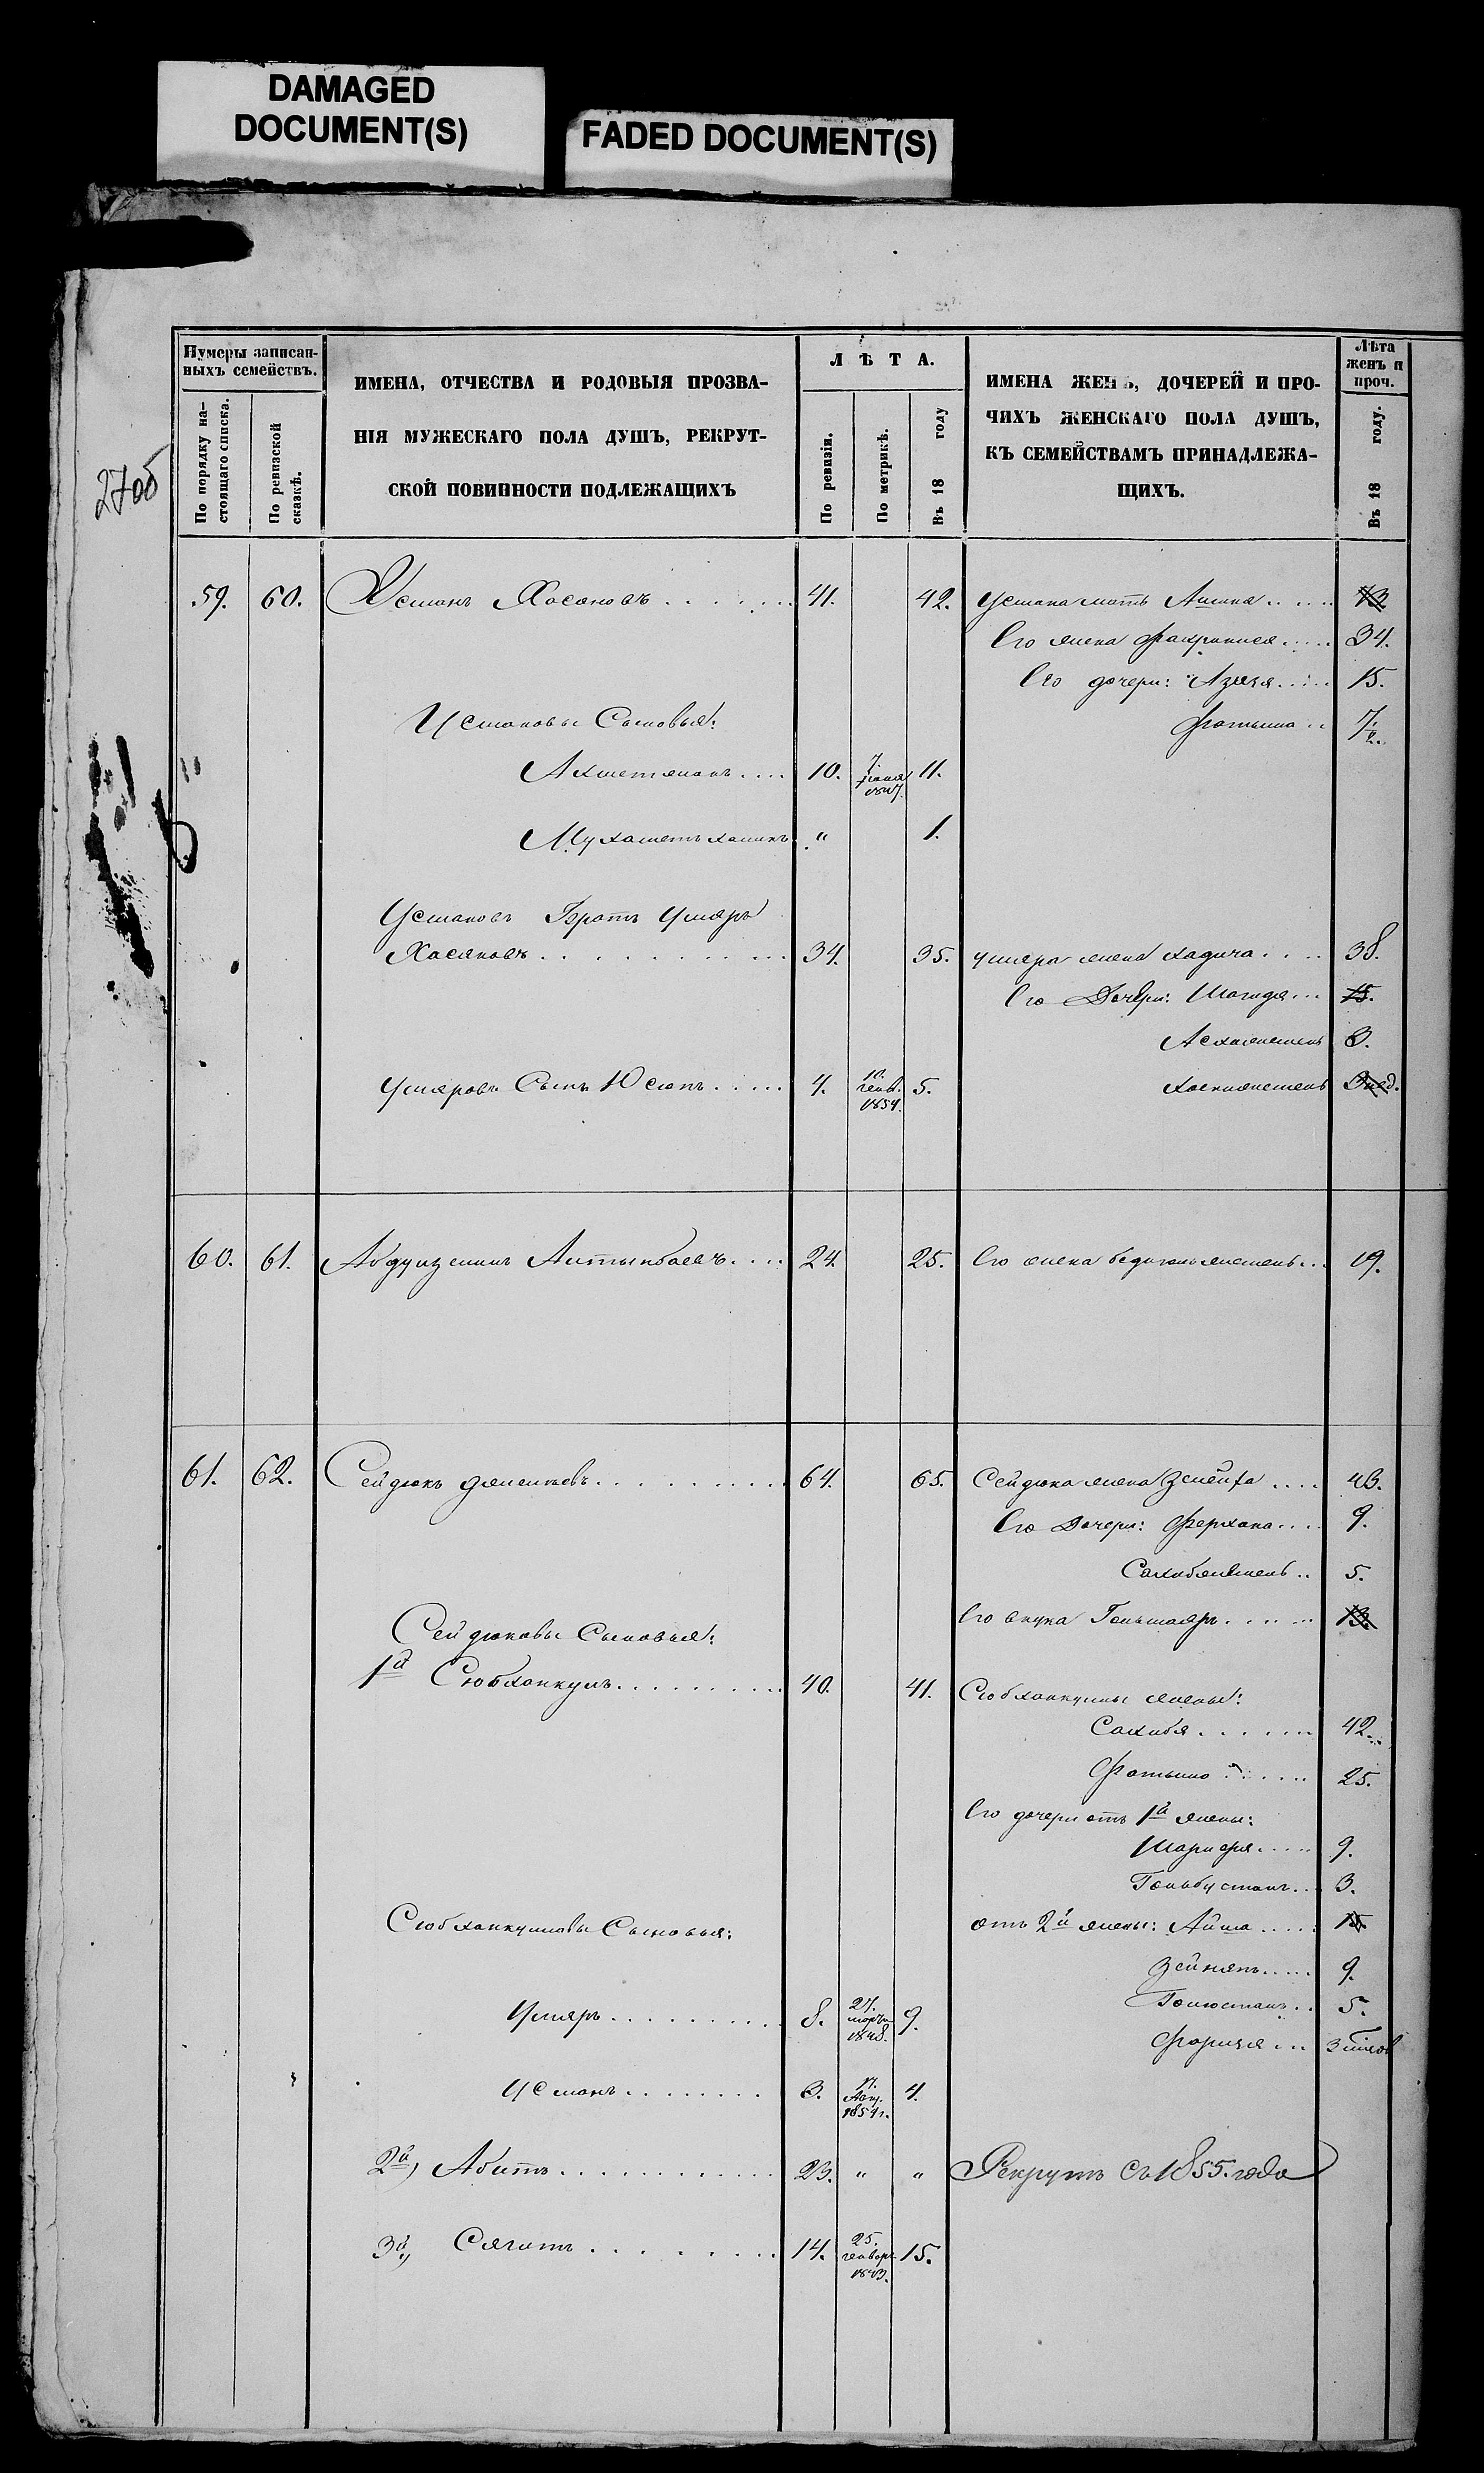 DAMAGED
DOCUMENT(S)
FADED DOCUMENT(S)
270б
Нумеры записан-
ныхъ семействъ.
По порядку на-
стоящаго списка.
По ревизской
сказкѣ.
ИМЕНА, ОТЧЕСТВА И РОДОВЫЯ ПРОЗВА-
НІЯ МУЖЕСКАГО ПОЛА ДУШЪ, РЕКРУТ-
СКОЙ ПОВИННОСТИ ПОДЛЕЖАЩИХЪ
ЛѢТА.
По ревизіи.
По метрикѣ.
Въ 18 году
ИМЕНА ЖЕНЪ, ДОЧЕРЕЙ И ПРО-
ЧИХЪ ЖЕНСКАГО ПОЛА ДУШЪ,
КЪ СЕМЕЙСТВАМЪ ПРИНАДЛЕЖА-
ЩИХЪ.
Лѣта
женъ и
проч.
Въ 18 году.
59. 60. Усманъ Хасановъ . . . . . 41. 42. Усмана мать . . . . 73
Его жена . . . . 34.
Его дочери: Азизя . . . . 15.
Усмановы Сыновья: Фатыма . . 7 1/2.
Ахметжанъ . . . . 10. 7. 1847. 11.
Мухаметъ " 1.
Усмановъ Братъ Умяръ
Хасановъ . . . . . . . . . . 34. 35. Умяра жена Хадича . . . . 38.
Его Дочери: Шагидя . . . 15.
3.
Умяровъ Сынъ Юсюпъ . . . . . 4. 10. генв. 1854. 5. 3 нед.
60. 61. Абдул Алтынбаевъ . . . . 24. 25. Его жена . . . 19.
61. 62. Сейдюкъ . . . . . . . . . 64. 65. Сейдюка жена . . . . 43.
Его Дочери: . . . . 9.
Сахибжемень . . 5.
Его внука . . . . . . 13.
Сейдюковы Сыновья:
1й Сюбханкулъ . . . . . . . . . 40. 41. Сюбханкуловы жены:
Сахибя . . . . . . 42.
Фатыма . . . . . . 25.
Его дочери отъ 1й жены:
Шарифя . . . . . 9.
Гюльбустанъ . . . 3.
Сюбханкуловы Сыновья: отъ 2й жены: Айша . . . . . 15
Зейнапъ . . . . . 9.
Умяръ . . . . . . . . . 8. 27. марта 1848. 9. Гюлюстанъ . . 5.
Фаризя . . .
Усманъ . . . . . . . . 3. 1854 г. 4.
2й, Абитъ . . . . . . . . . . . 23. " " Рекрутъ съ 1855. года
3й, Сягитъ . . . . . . . . 14. 25. генвар. 1843. 15.